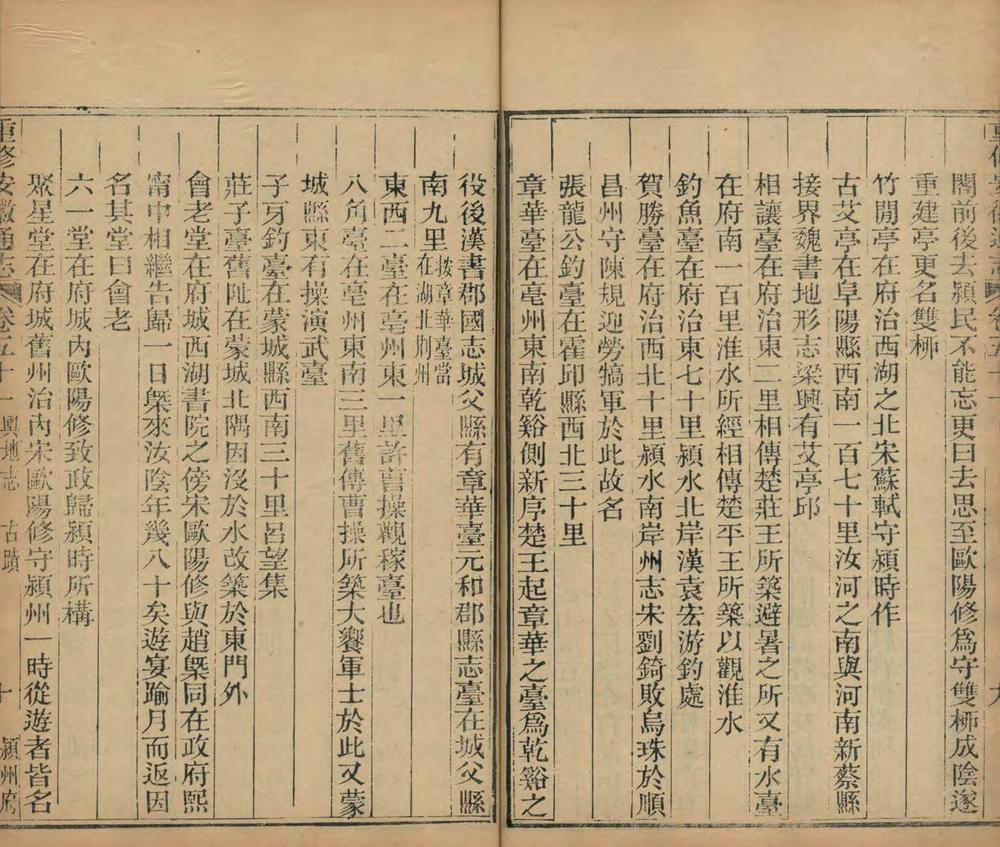 閣前後去潁民不能忘更曰去思至歐陽修爲守雙栁成陰遂
重建亭更名雙栁
竹閒亭在府治西湖之北宋蘇軾守潁時作
古艾亭在阜陽縣西南一百七十里汝河之南與河南新蔡縣
接界魏書地形志梁興有艾亭邱
相讓臺在府治東二里相傳楚莊王所築避暑之所又有水臺
在府南一百里淮水所經相傳楚平王所築以觀淮水
釣魚臺在府治東七十里潁水北岸漢袁宏游釣處
賀勝臺在府治西北十里潁水南岸州志宋劉錡敗烏珠於順
昌州守陳規迎勞犒軍於此故名
張龍公釣臺在霍邱縣西北三十里
章華臺在亳州東南乾谿側新序楚王起章華之臺爲乾谿之
役後漢書郡國志城父縣有章華臺元和郡縣志臺在城父縣
南九里按章華臺當在湖北荆州
東西二臺在亳州東一里許曹操觀稼臺也
八角臺在亳州東南三里舊傳曹操所築大饗軍士於此又蒙
城縣東有操演武臺
子牙釣臺在蒙城縣西南三十里呂望集
莊子臺舊阯在蒙城北隅因沒於水改築於東門外
會老堂在府城西湖書院之傍宋歐陽修與趙槩同在政府熙
甯中相繼告歸一日槩來汝陰年幾八十矣遊宴踰月而返因
名其堂曰會老
六一堂在府城內歐陽修致政歸潁時所構
聚星堂在府城舊州治內宋歐陽修守潁州一時從遊者皆名
重修安徽通志 卷五十一 輿地志 古蹟 十 潁州府